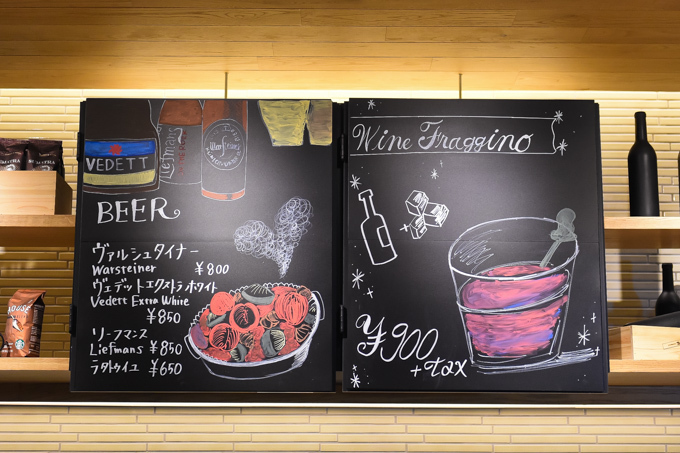 VEDETT
Liefmans
Warsteiner
BEER
ヴァルシュタイナー
Warsteiner ¥800
ヴェデットエクストラホワイト
Vedett Extra White
¥850
リーフマンス
Liefmans ¥850
ラタトゥイユ ¥650
Wine Fraggino
¥900
+tax